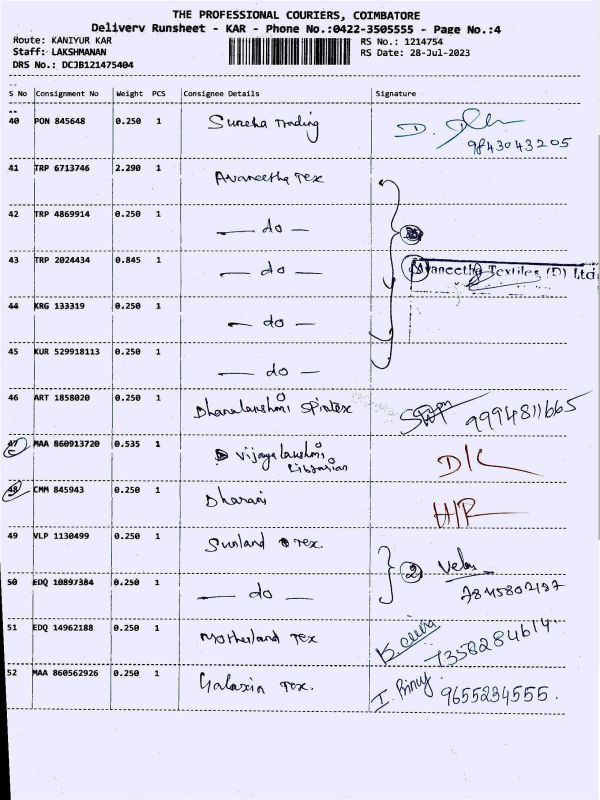 THE PROFESSIONAL COURIERS, COIMBATORE
Delivery Runsheet - KAR - Phone No.:0422-3505555 - Page No.:4
Route: KANIYUR KAR RS No.: 1214754
Staff: LAKSHMANAN RS Date: 28-Jul-2023
DRS No.: DCJB121475404
S No Consignment No Weight PCS Consignee Details Signature
40 PON 845648 0.250 1 Sureka Trading 9843043205
41 TRP 6713746 2.290 1 Avaneetha Tex
42 TRP 4869914 0.250 1 — do —
43 TRP 2024434 0.845 1 — do — Avaneetha Textiles (P) Ltd
44 KRG 133319 0.250 1 — do —
45 KUR 529918113 0.250 1 — do —
46 ART 1858020 0.250 1 Dhanalakshmi Spintex 9994811665
47 MAA 860913720 0.535 1 Vijayalakshmi D/L
Librarian
48 CMM 845943 0.250 1 Dharani H/R
49 VLP 1130499 0.250 1 Sunland Tex. 2
50 EDQ 10897384 0.250 1 — do —
51 EDQ 14962188 0.250 1 Motherland Tex 7358284614
52 MAA 860562926 0.250 1 Galaxia Tex. 9655234555.